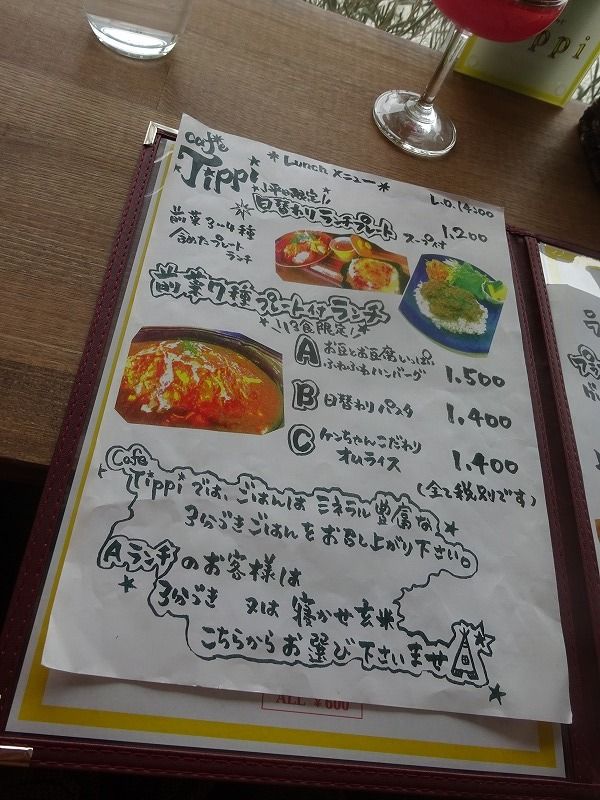 cafe
Tippi
Lunch メニュー
L.O. 14:00
平日限定!
日替わりランチプレート
スープ付
1,200
前菜3~4種
含めたプレート
ランチ
前菜7種プレート付ランチ
食限定!
A お豆とお豆腐いっぱい
ふわふわハンバーグ
1,500
B 日替わりパスタ
1,400
C ケンちゃんこだわり
オムライス
1,400
(全て税別です)
Cafe
Tippiでは、ごはんはミネラル豊富な
3分づきごはんをお召し上がり下さい。
Aランチのお客様は
3分づき 又は 寝かせ玄米
こちらからお選び下さいませ
ALL ¥600
ppi